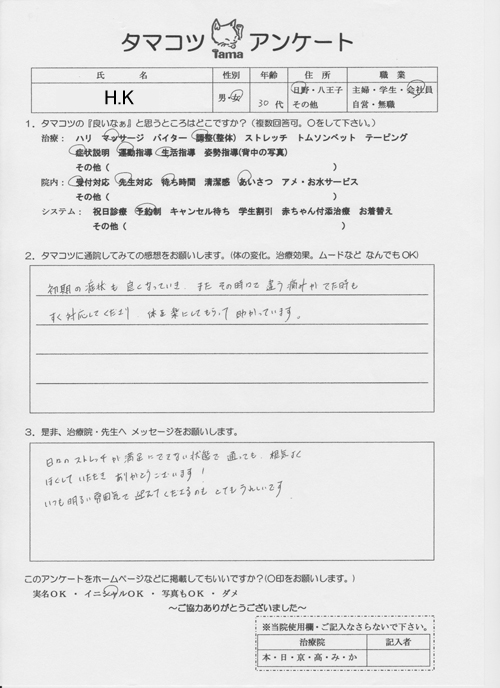 タマコツ Tama アンケート
氏 名 性別 年齢 住 所 職 業
H.K 男・女 30代 日野・八王子 その他 主婦・学生・会社員 自営・無職
1．タマコツの『良いなぁ』と思うところはどこですか？（複数回答可。○をして下さい。）
治療： ハリ マッサージ バイター 調整(整体) ストレッチ トムソンベット テーピング
症状説明 運動指導 生活指導 姿勢指導(背中の写真)
その他（ ）
院内： 受付対応 先生対応 待ち時間 清潔感 あいさつ アメ・お水サービス
その他（ ）
システム： 祝日診療 予約制 キャンセル待ち 学生割引 赤ちゃん付添治療 お着替え
その他（ ）
2．タマコツに通院してみての感想をお願いします。（体の変化。治療効果。ムードなど なんでもOK）
初期の症状も良くなっていき、また その時々で 違う痛みがでた時も
すぐ対応してくださり 体を楽にしてもらって 助かっています。
3．是非、治療院・先生へ メッセージをお願いします。
日々のストレッチが満足にできない状態で 通っても、根気よく
ほぐしていただき ありがとうございます！
いつも明るい雰囲気で 迎えてくださるのも とてもうれしいです
このアンケートをホームページなどに掲載してもいいですか？(○印をお願いします。)
実名OK ・ イニシャルOK ・ 写真もOK ・ ダメ
～ご協力ありがとうございました～
※当院使用欄・ご記入なさらないで下さい。
治療院 記入者
本・日・京・高・み・か